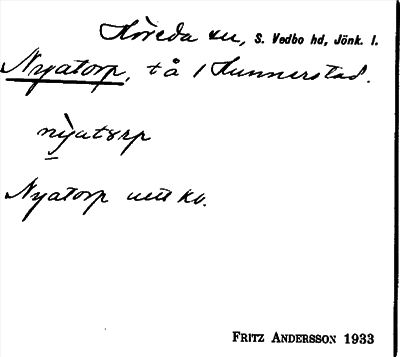 Höreda sn, S. Vedbo hd, Jönk. l.
Nyatorp, t å 1 Hunnerstad.
nỳatorp
Nyatorp utt kv.
FRITZ ANDERSSON 1933